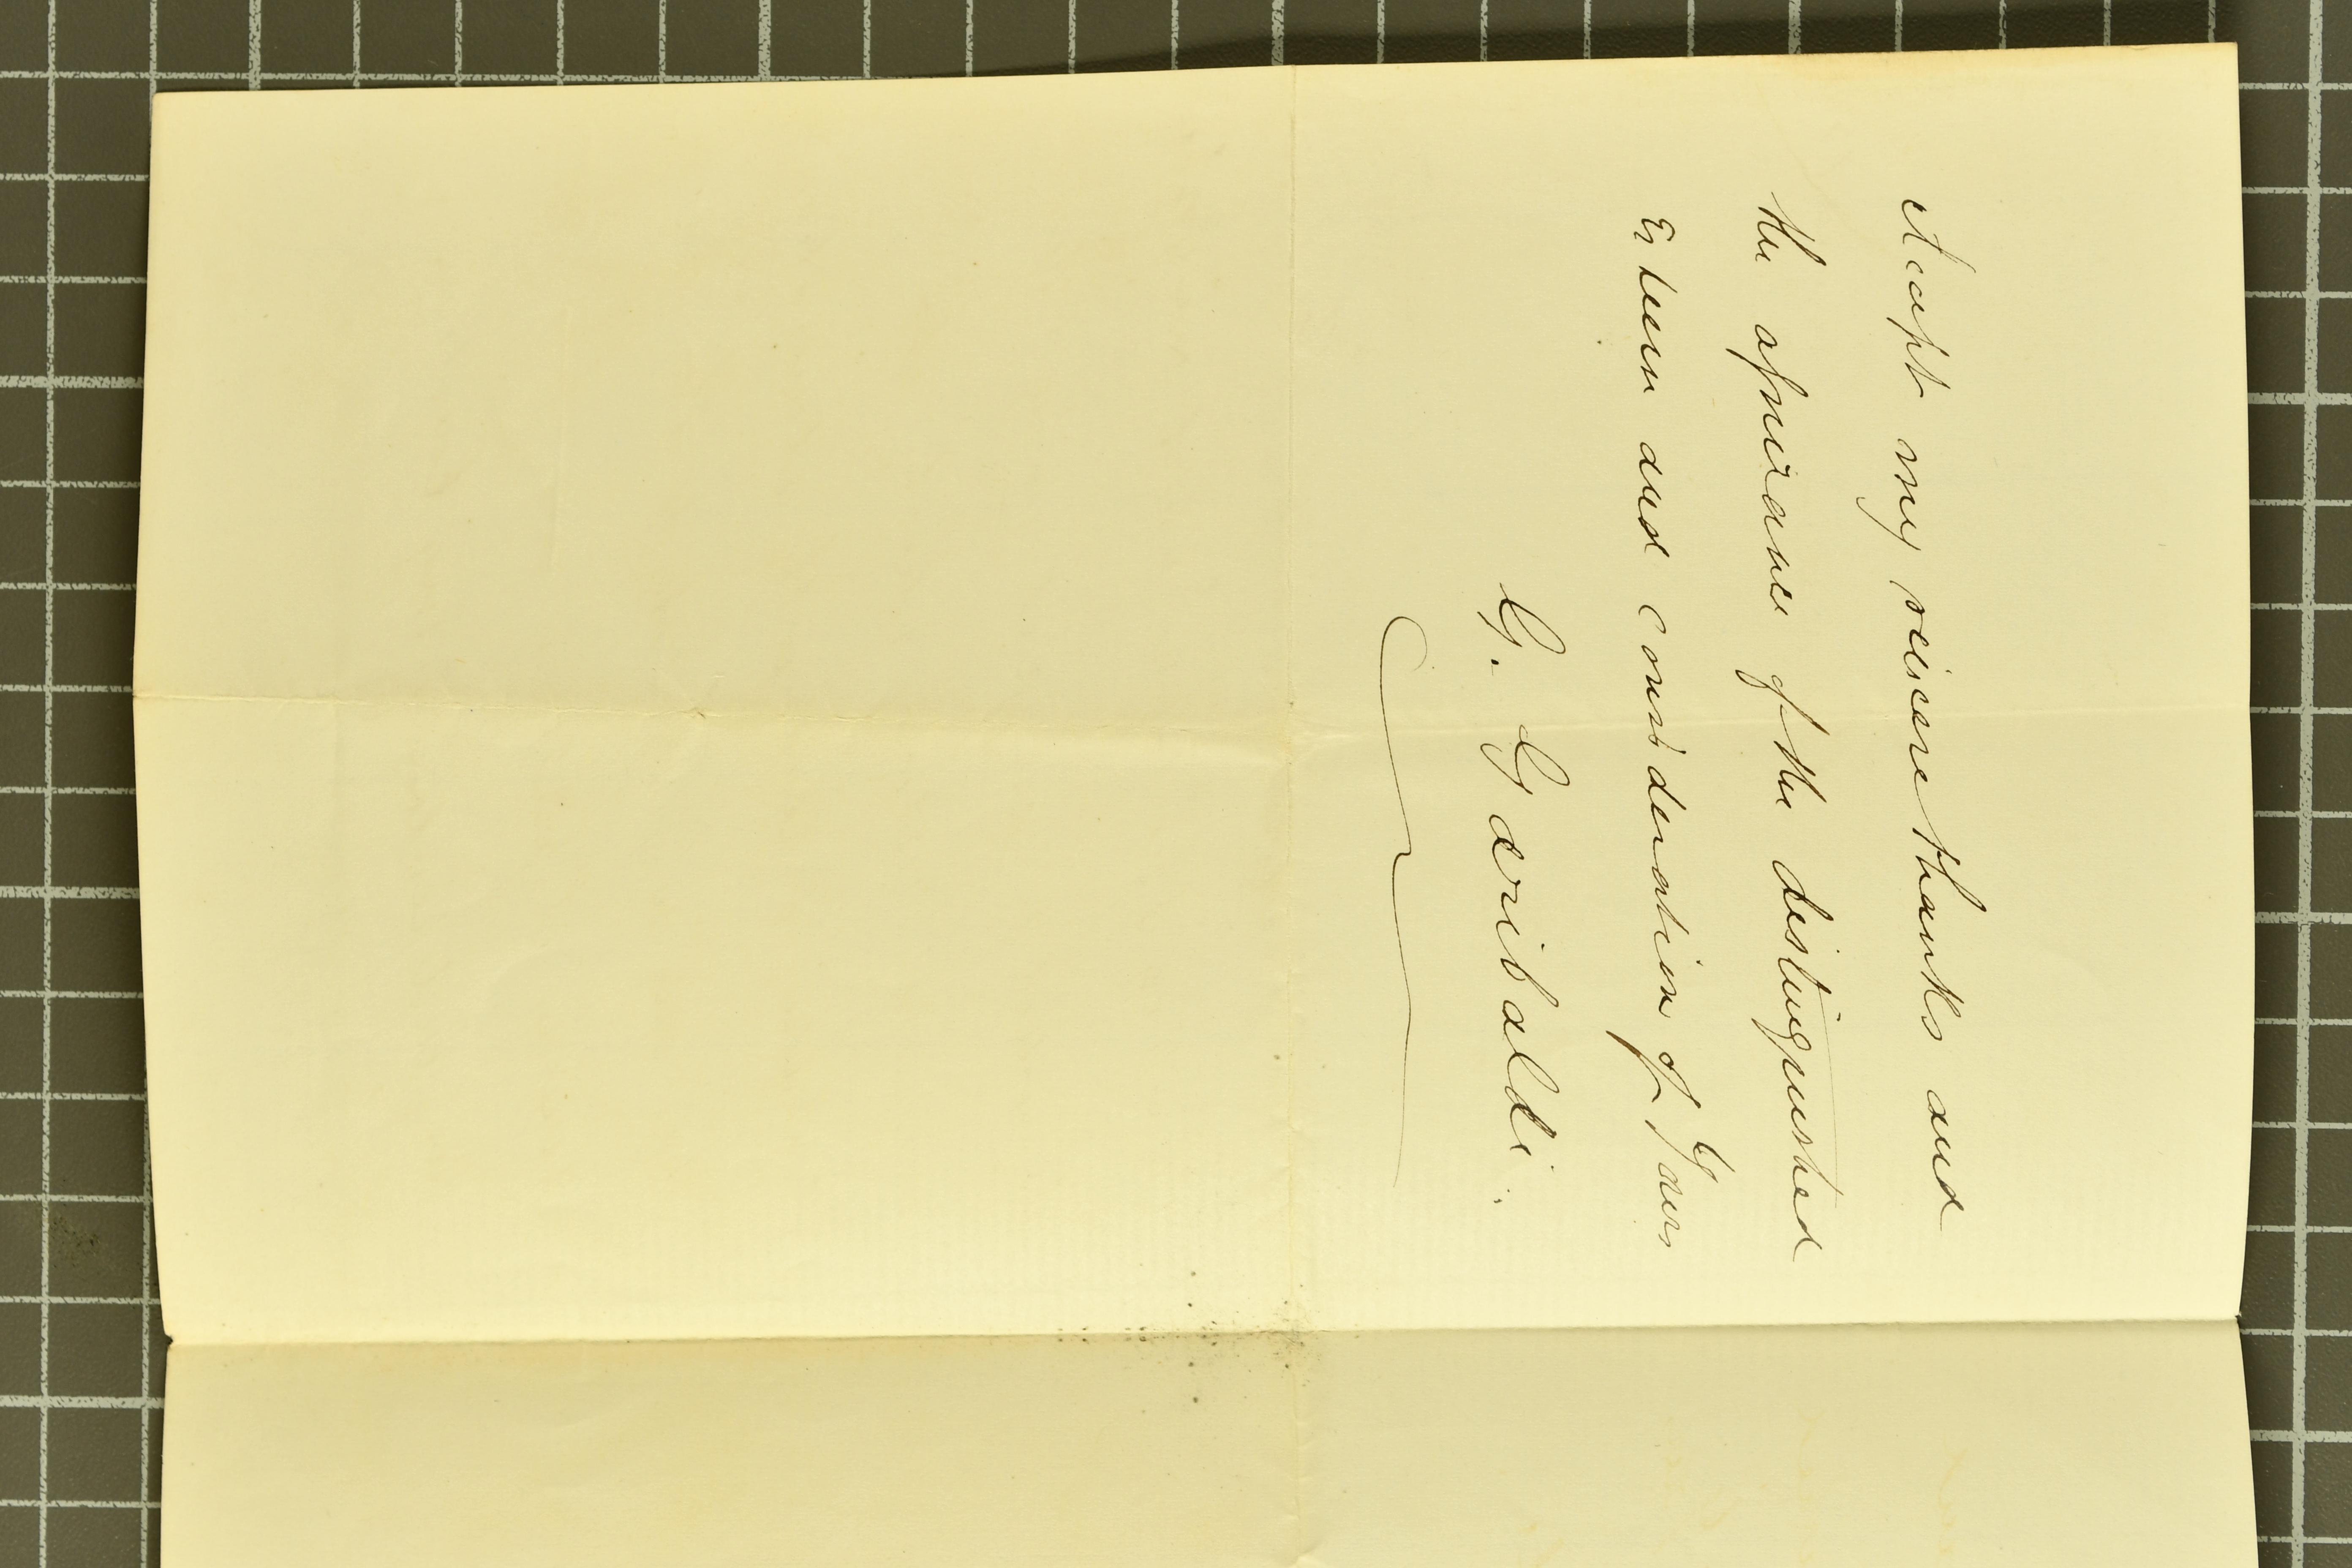 Accept my sincere thanks and
the assurance of the distinguished
Esteem and consideration of Yours
G. Garibaldi.